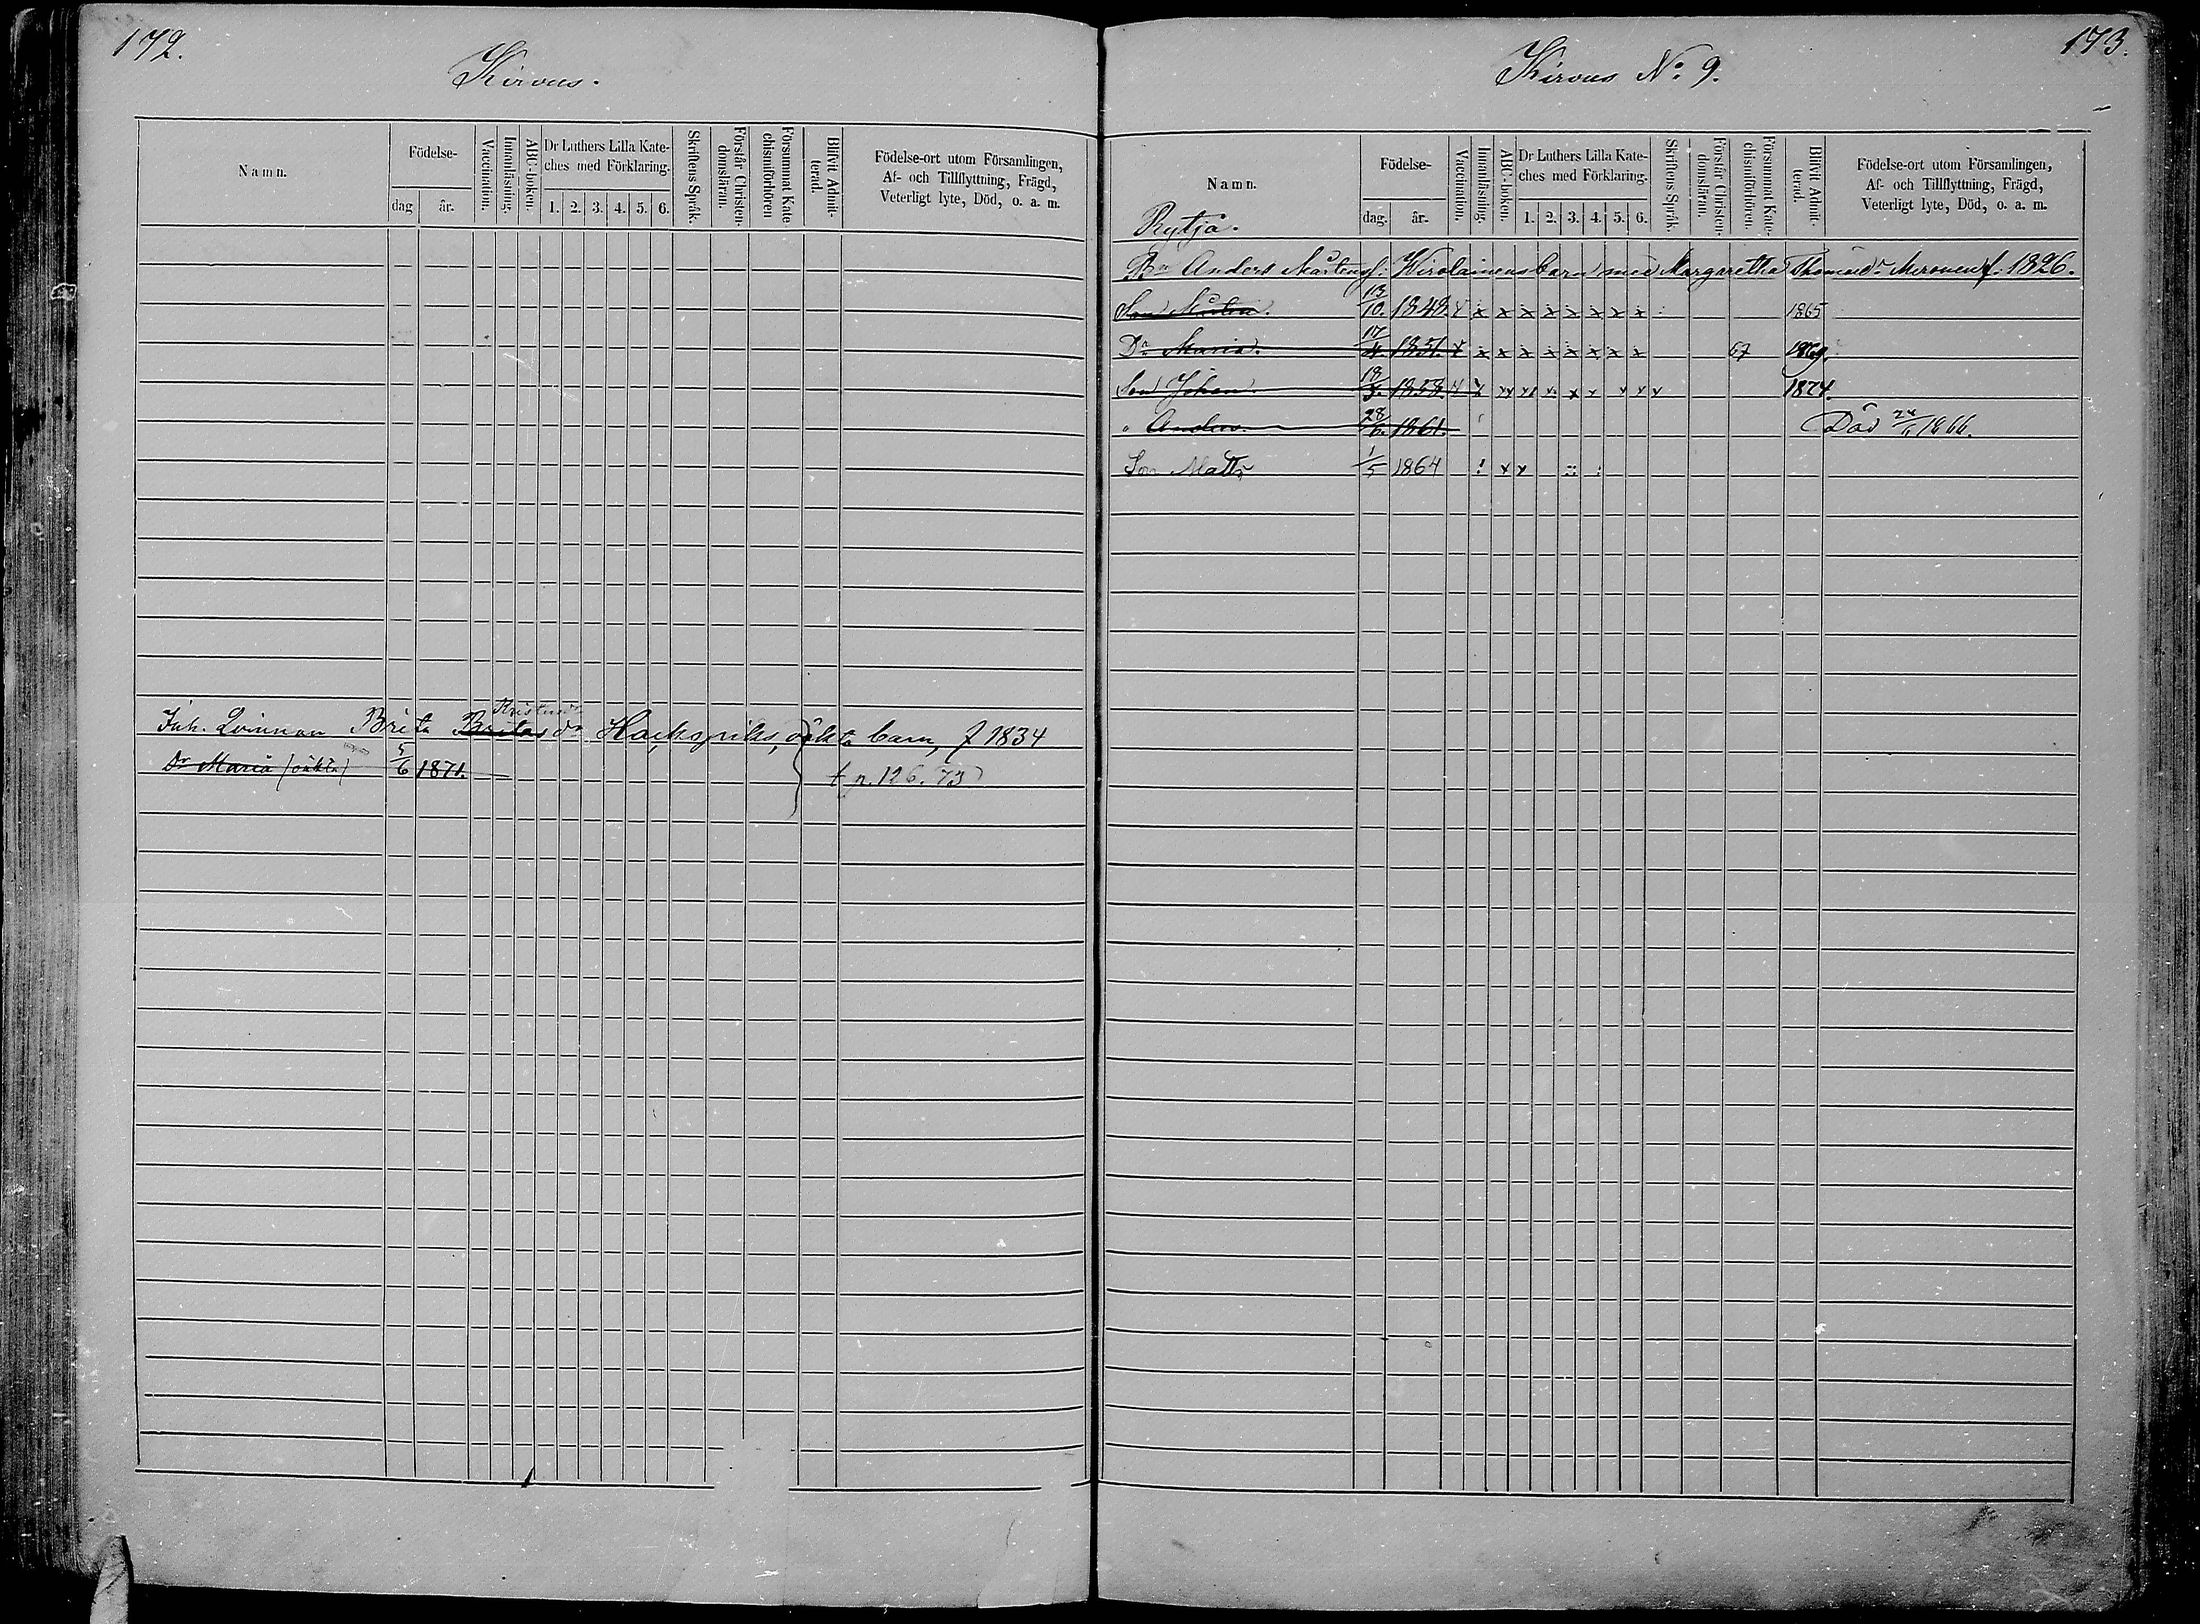 172.
Kirvus.
Namn.
Födelse-
dag
år.
Vaccination.
Innanläsning.
ABC-boken.
Dr Luthers Lilla Kate-
ches med Förklaring.
1. 2. 3. 4. 5. 6.
Skriftens Språk.
Förstår Christen-
domsläran.
Försummat Kate-
chismiförhören
Blifvit Admit-
terad.
Födelse-ort utom Församlingen,
Af- och Tillflyttning, Frägd,
Veterligt lyte, Död, o. a. m.
Kristusdr
Inh. Qvinnan Brita Britas dr Hackspiks, oäkta barn, f 1834
Dr Maria (oäkta) 5/6 1871. t p. 126. 73
173.
Kirvus No 9.
Namn.
Rytjä.
Födelse-
dag.
år.
Vaccination.
Innanläsning.
ABC-boken.
Dr Luthers Lilla Kate-
ches med Förklaring.
1. 2. 3. 4. 5. 6.
Skriftens Språk.
Förstår Christen-
domsläran.
Försummat Kate-
chismiförhören.
Blifvit Admit-
terad.
Födelse-ort utom Församlingen,
Af- och Tillflyttning, Frägd,
Veterligt lyte, Död, o. a. m.
Bn Anders Mårtenss: Wirolainens barn med Margaretha Thomsdr Meronen f. 1826.
Son Mårten. 13/10. 1848. x x x x x x x x x 1865
Dr Maria. 17/4 1851. x x x x x x x x x 67 1869.
Son Johan. 18/3. 1858. x x xx xx x x x x x x 1874.
" Anders. 28/6. 1861. Död 24/11 1866.
Son Matts 1/5 1864 x x